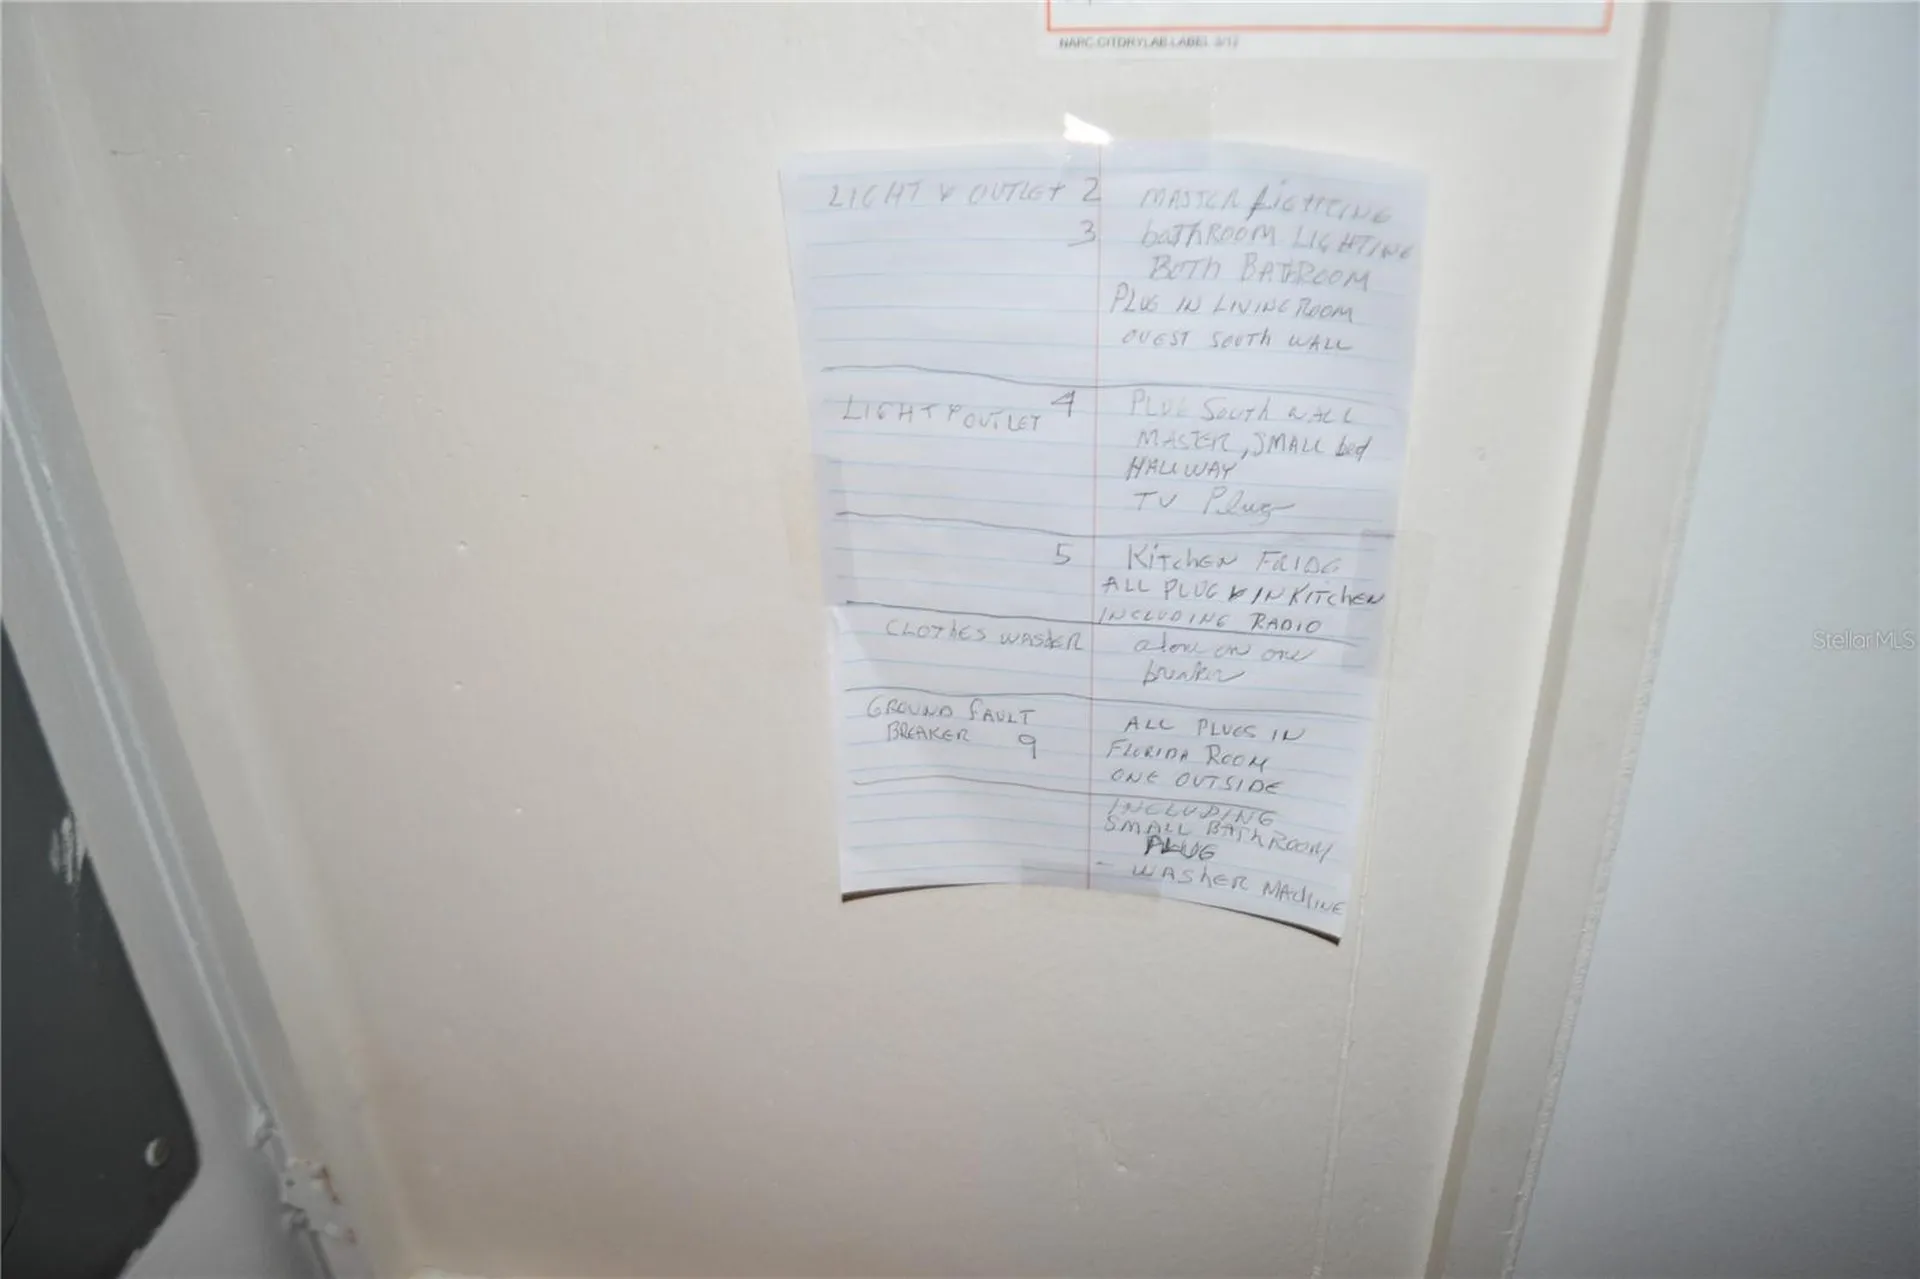 NARC.CITDRYLAB.LABEL 3/12
LIGHT & OUTLET 2 MASTER LIGHTING
3 bATHROOM LIGHTING
BOTH BATHROOM
PLUG IN LIVING ROOM
OUEST SOUTH WALL
LIGHT & OUTLET 4 PLUG SOUTH WALL
MASTER, SMALL bed
HALLWAY
TV Plug
5 KITCHEN FRIDG
ALL PLUG IN KITCHEN
INCLUDING RADIO
CLOTHES WASHER alone on one
breaker
GROUND FAULT ALL PLUGS IN
BREAKER 9 FLORIDA ROOM
ONE OUTSIDE
INCLUDING
SMALL BATHROOM
PLUG
- WASHER MACHINE
StellarMLS